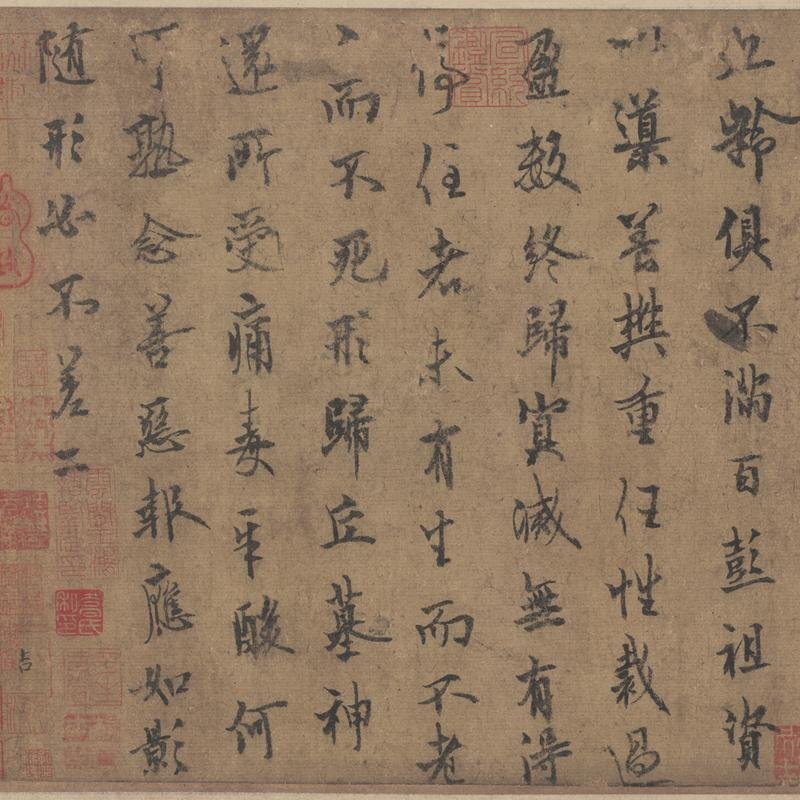 九齡俱不滿百彭祖資
以導養樊重任性裁過
盈數終歸冥滅無有得
停住者未有生而不老
〻而不死形歸丘墓神
還所受痛毒辛酸何
可熟念善惡報應如影
随形必不差二